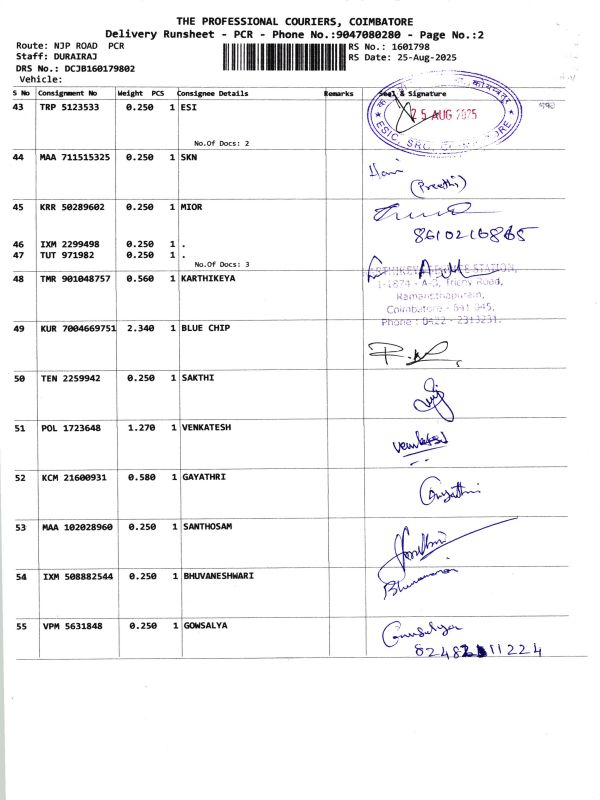 THE PROFESSIONAL COURIERS, COIMBATORE
Delivery Runsheet - PCR - Phone No.:9047080280 - Page No.:2
Route: NJP ROAD PCR
RS No.: 1601798
Staff: DURAIRAJ
RS Date: 25-Aug-2025
DRS No.: DCJB160179802
Vehicle:
S No Consignment No Weight PCS Consignee Details Remarks Seal & Signature
43 TRP 5123533 0.250 1 ESI
25 AUG 2025
No.Of Docs: 2
44 MAA 711515325 0.250 1 SKN
(Preethi)
45 KRR 50289602 0.250 1 MIOR
46 IXM 2299498 0.250 1 .
47 TUT 971982 0.250 1 .
No.Of Docs: 3
48 TMR 901048757 0.560 1 KARTHIKEYA
Trichy Road,
Ramanathapuram,
Coimbatore - 641 045.
Phone : 0422 - 2313231.
49 KUR 7004669751 2.340 1 BLUE CHIP
50 TEN 2259942 0.250 1 SAKTHI
51 POL 1723648 1.270 1 VENKATESH
52 KCM 21600931 0.580 1 GAYATHRI
Gayathri
53 MAA 102028960 0.250 1 SANTHOSAM
54 IXM 508882544 0.250 1 BHUVANESHWARI
55 VPM 5631848 0.250 1 GOWSALYA
Gowsalya